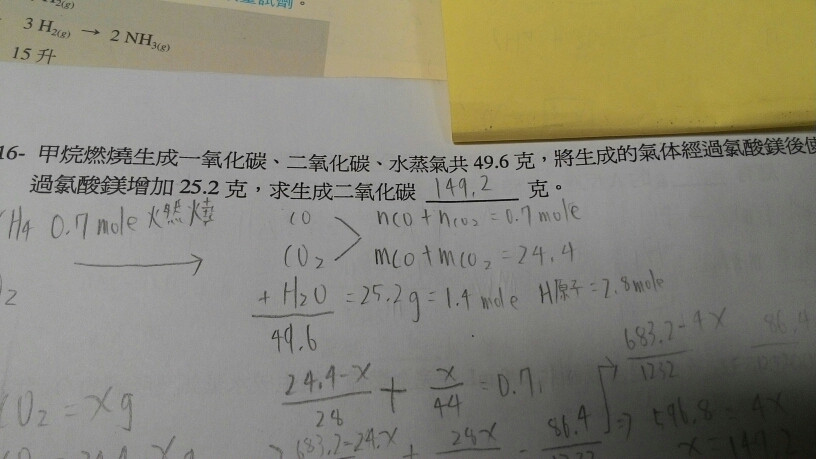 3 H₂(g) → 2 NH₃(g)
15 升
16- 甲烷燃燒生成一氧化碳、二氧化碳、水蒸氣共 49.6 克，將生成的氣体經過氯酸鎂後使
過氯酸鎂增加 25.2 克，求生成二氧化碳 149.2 克。
CH4 0.7 mole 燃燒
→
CO
CO₂
nco + nco₂ = 0.7 mole
mco + mco₂ = 24.4
+ H₂O = 25.2g = 1.4 mole H原子 = 2.8mole
49.6
24.4-x/28 + x/44 = 0.7
683.2-4x/1232
CO₂ = xg
683.2-24x + 28x
86.4
⇒ 596.8 = 4x
x = 149.2